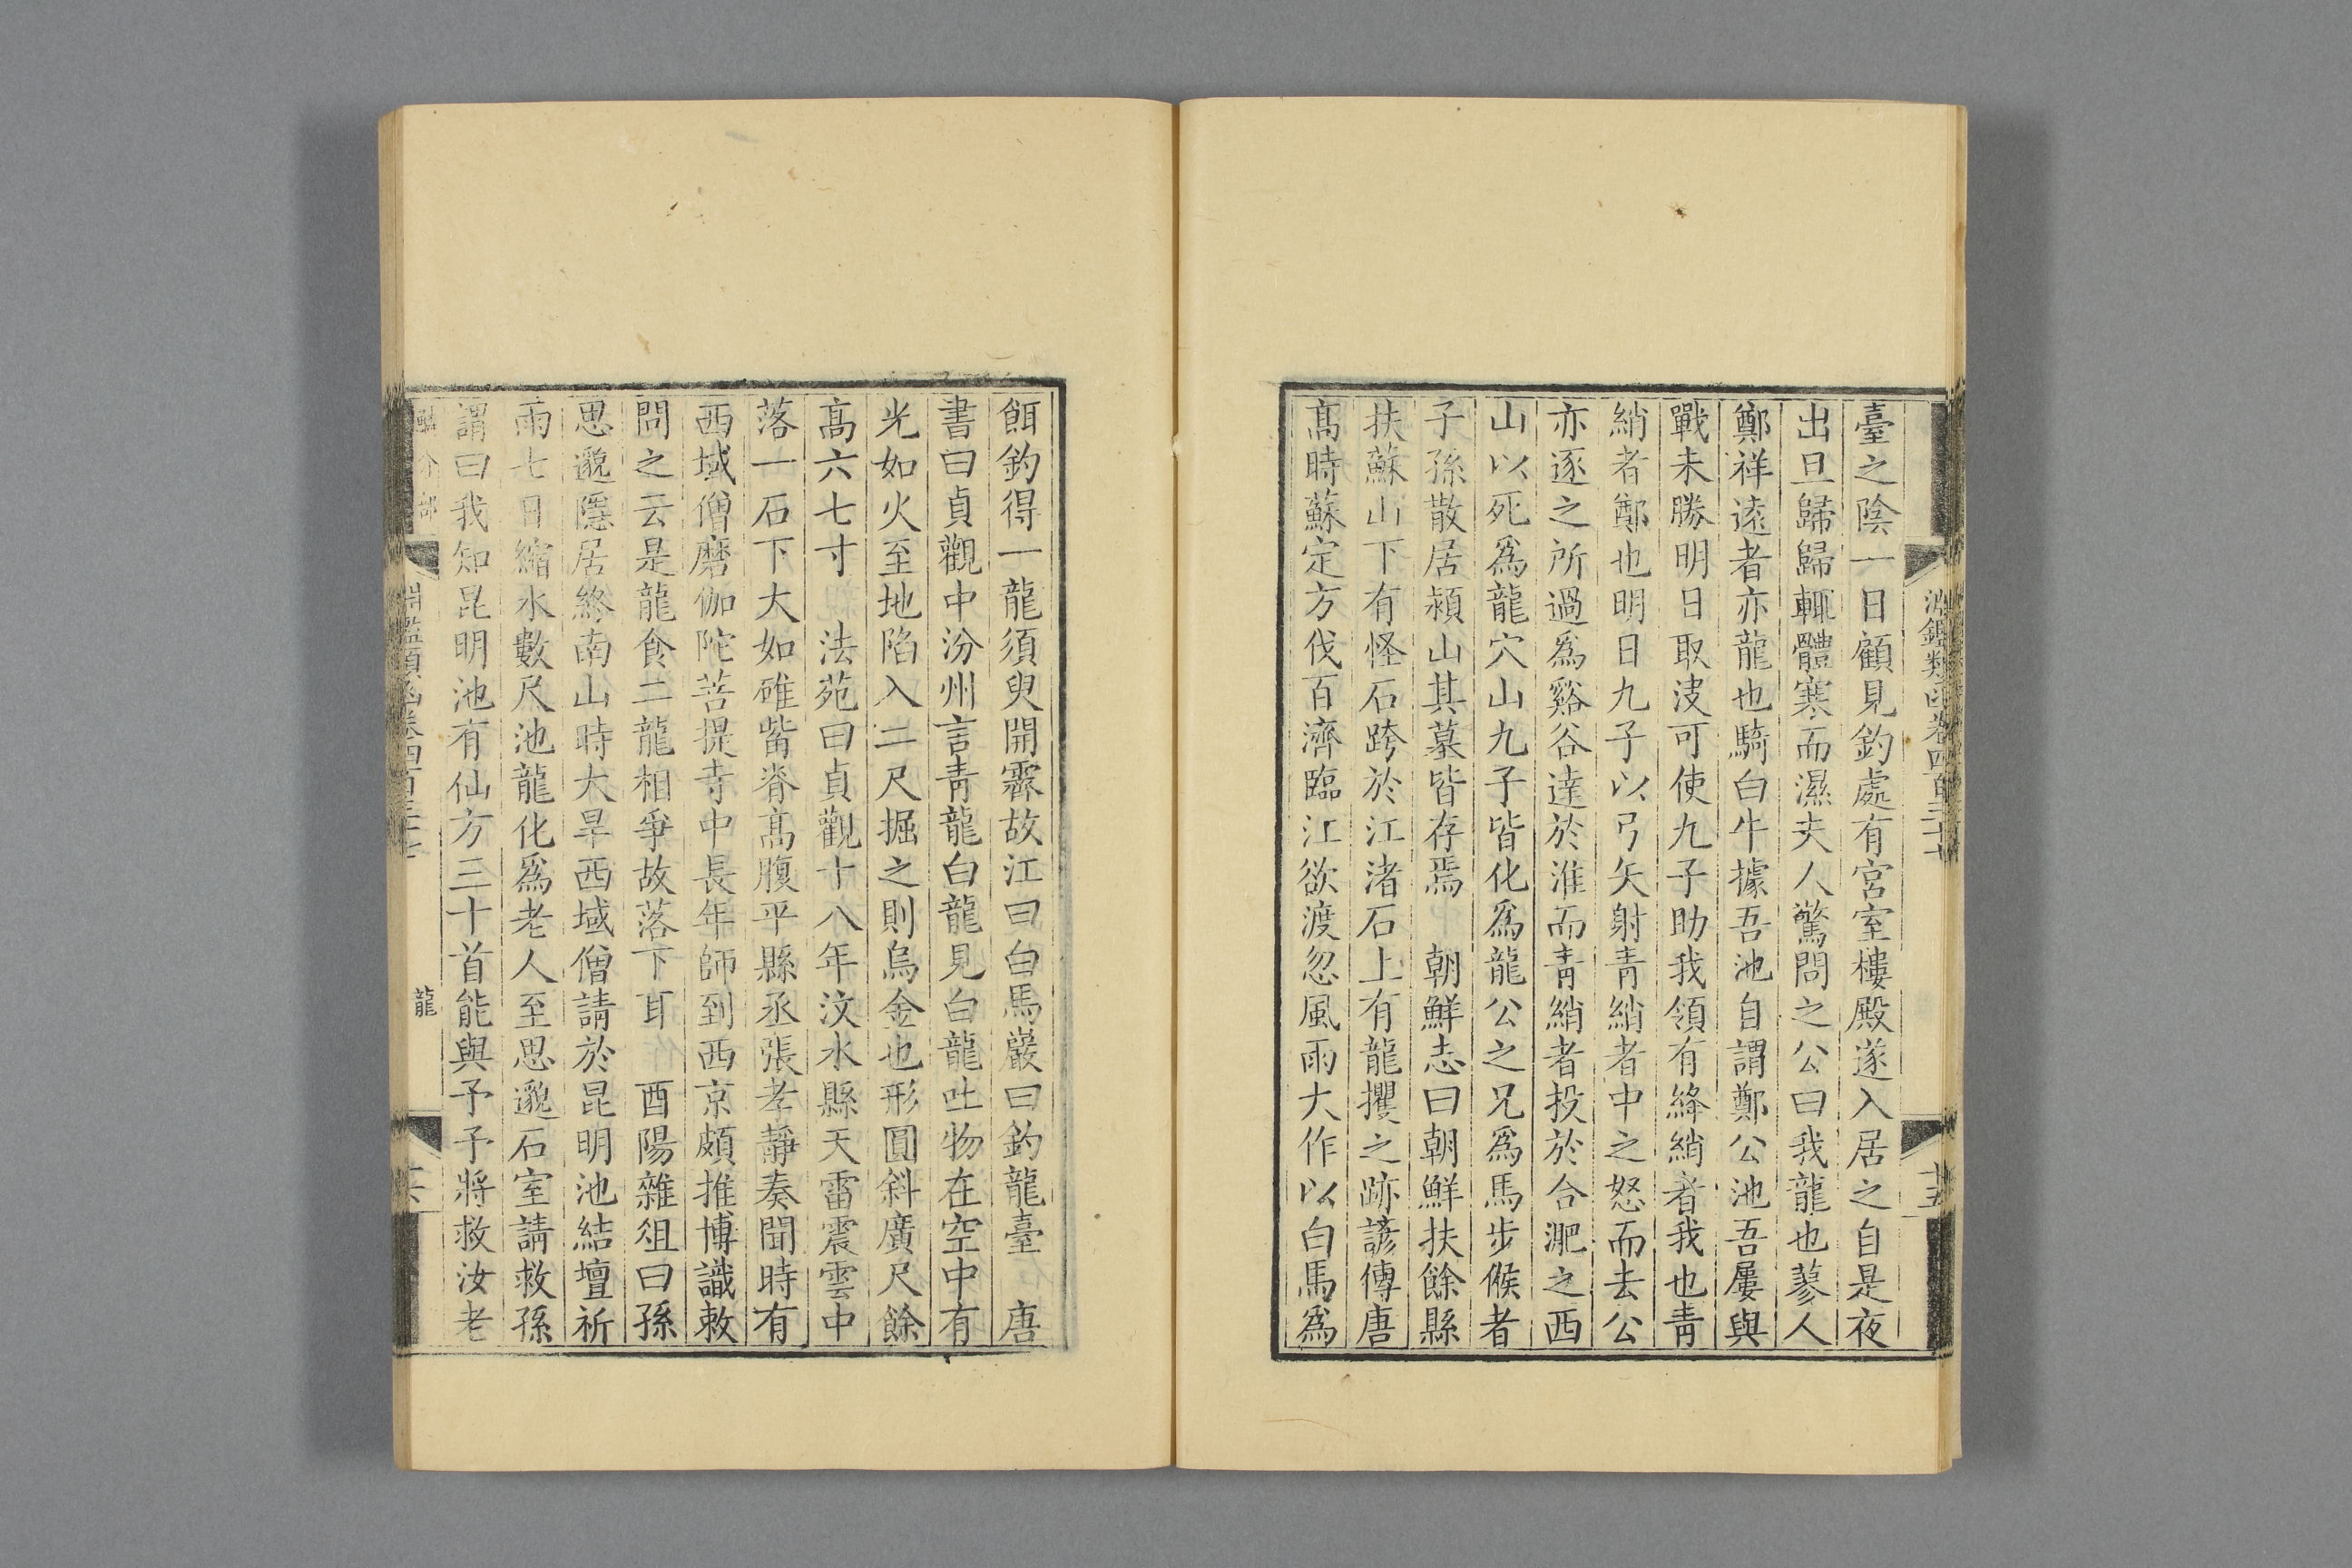 淵鑑類函卷四百三十七
十五
臺之陰一日顧見釣處有宮室樓殿遂入居之自是夜
出旦歸歸輒體寒而濕夫人驚問之公曰我龍也蓼人
鄭祥遠者亦龍也騎白牛據吾池自謂鄭公池吾屢與
戰未勝明日取決可使九子助我領有絳綃者我也青
綃者鄭也明日九子以弓矢射青綃者中之怒而去公
亦逐之所過爲谿谷達於淮而青綃者投於合淝之西
山以死爲龍穴山九子皆化爲龍公之兄爲馬步候者
子孫散居潁山其墓皆存焉 朝鮮志曰朝鮮扶餘縣
扶蘇山下有怪石跨於江渚石上有龍攫之跡諺傳唐
髙時蘇定方伐百濟臨江欲渡忽風雨大作以白馬爲
餌釣得一龍須臾開霽故江曰白馬巖曰釣龍臺 唐
書曰貞觀中汾州言青龍白龍見白龍吐物在空中有
光如火至地陷入二尺掘之則烏金也形圓斜廣尺餘
髙六七寸 法苑曰貞觀十八年汶水縣天雷震雲中
落一石下大如碓觜脊髙腹平縣丞張孝靜奏聞時有
西域僧磨伽陀菩提寺中長年師到西京頗推博識敕
問之云是龍食二龍相爭故落下耳 酉陽雜俎曰孫
思邈隱居終南山時大旱西域僧請於昆明池結壇祈
雨七日縮水數尺池龍化爲老人至思邈石室請救孫
謂曰我知昆明池有仙方三十首能與予予將救汝老
鱗介部
淵鑑類函卷四百三十七
龍